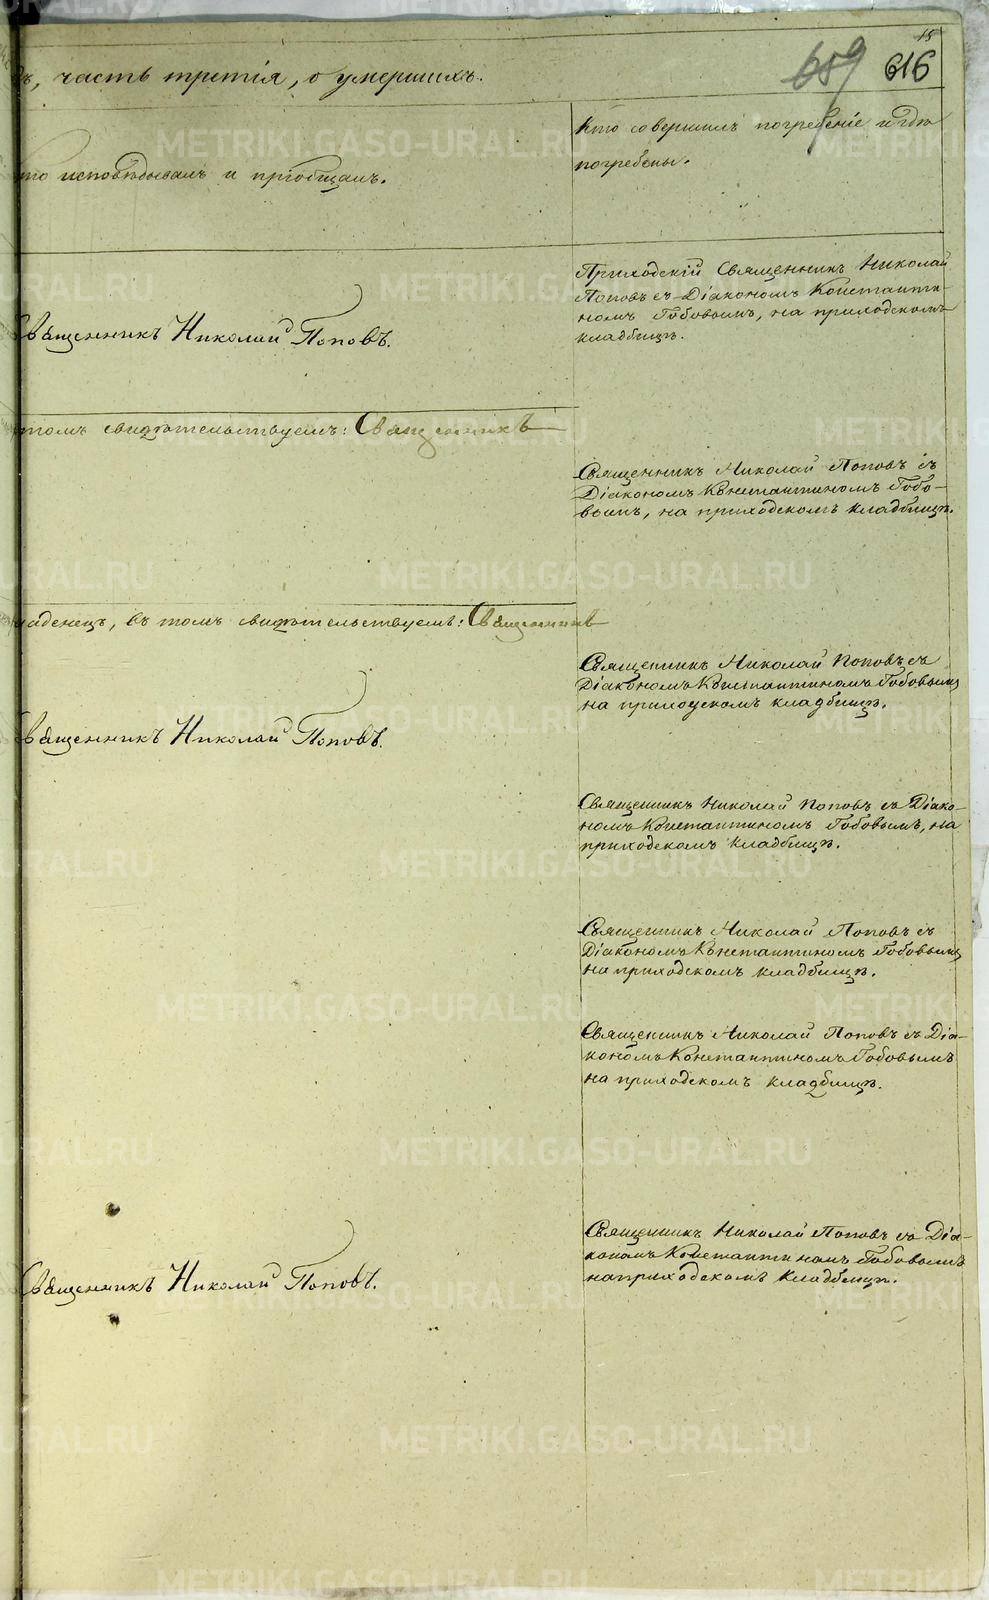 15
659 616
часть третія, о умершихъ.
Кто совершилъ погребеніе и гдѣ
погребены.
исповѣдывалъ и пріобщалъ.
Приходскій Священникъ Николай
Поповъ съ Діакономъ Константи-
номъ Гобовымъ, на приходскомъ
кладбищѣ.
Священникъ Николай Поповъ.
томъ свидѣтельствуемъ: Священникъ
Священникъ Николай Поповъ съ
Діакономъ Константиномъ Гобо-
вымъ, на приходскомъ кладбищѣ.
младенецъ, въ томъ свидѣтельствуемъ: Священникъ
Священникъ Николай Поповъ съ
Діакономъ Константиномъ Гобовымъ
на приходскомъ кладбищѣ.
Священникъ Николай Поповъ.
Священникъ Николай Поповъ съ Діако-
номъ Константиномъ Гобовымъ, на
приходскомъ кладбищѣ.
Священникъ Николай Поповъ съ
Діакономъ Константиномъ Гобовымъ
на приходскомъ кладбищѣ.
Священникъ Николай Поповъ съ Діа-
кономъ Константиномъ Гобовымъ
на приходскомъ кладбищѣ.
Священникъ Николай Поповъ съ Діа-
кономъ Константиномъ Гобовымъ
на приходскомъ кладбищѣ.
Священникъ Николай Поповъ.
METRIKI.GASO-URAL.RU